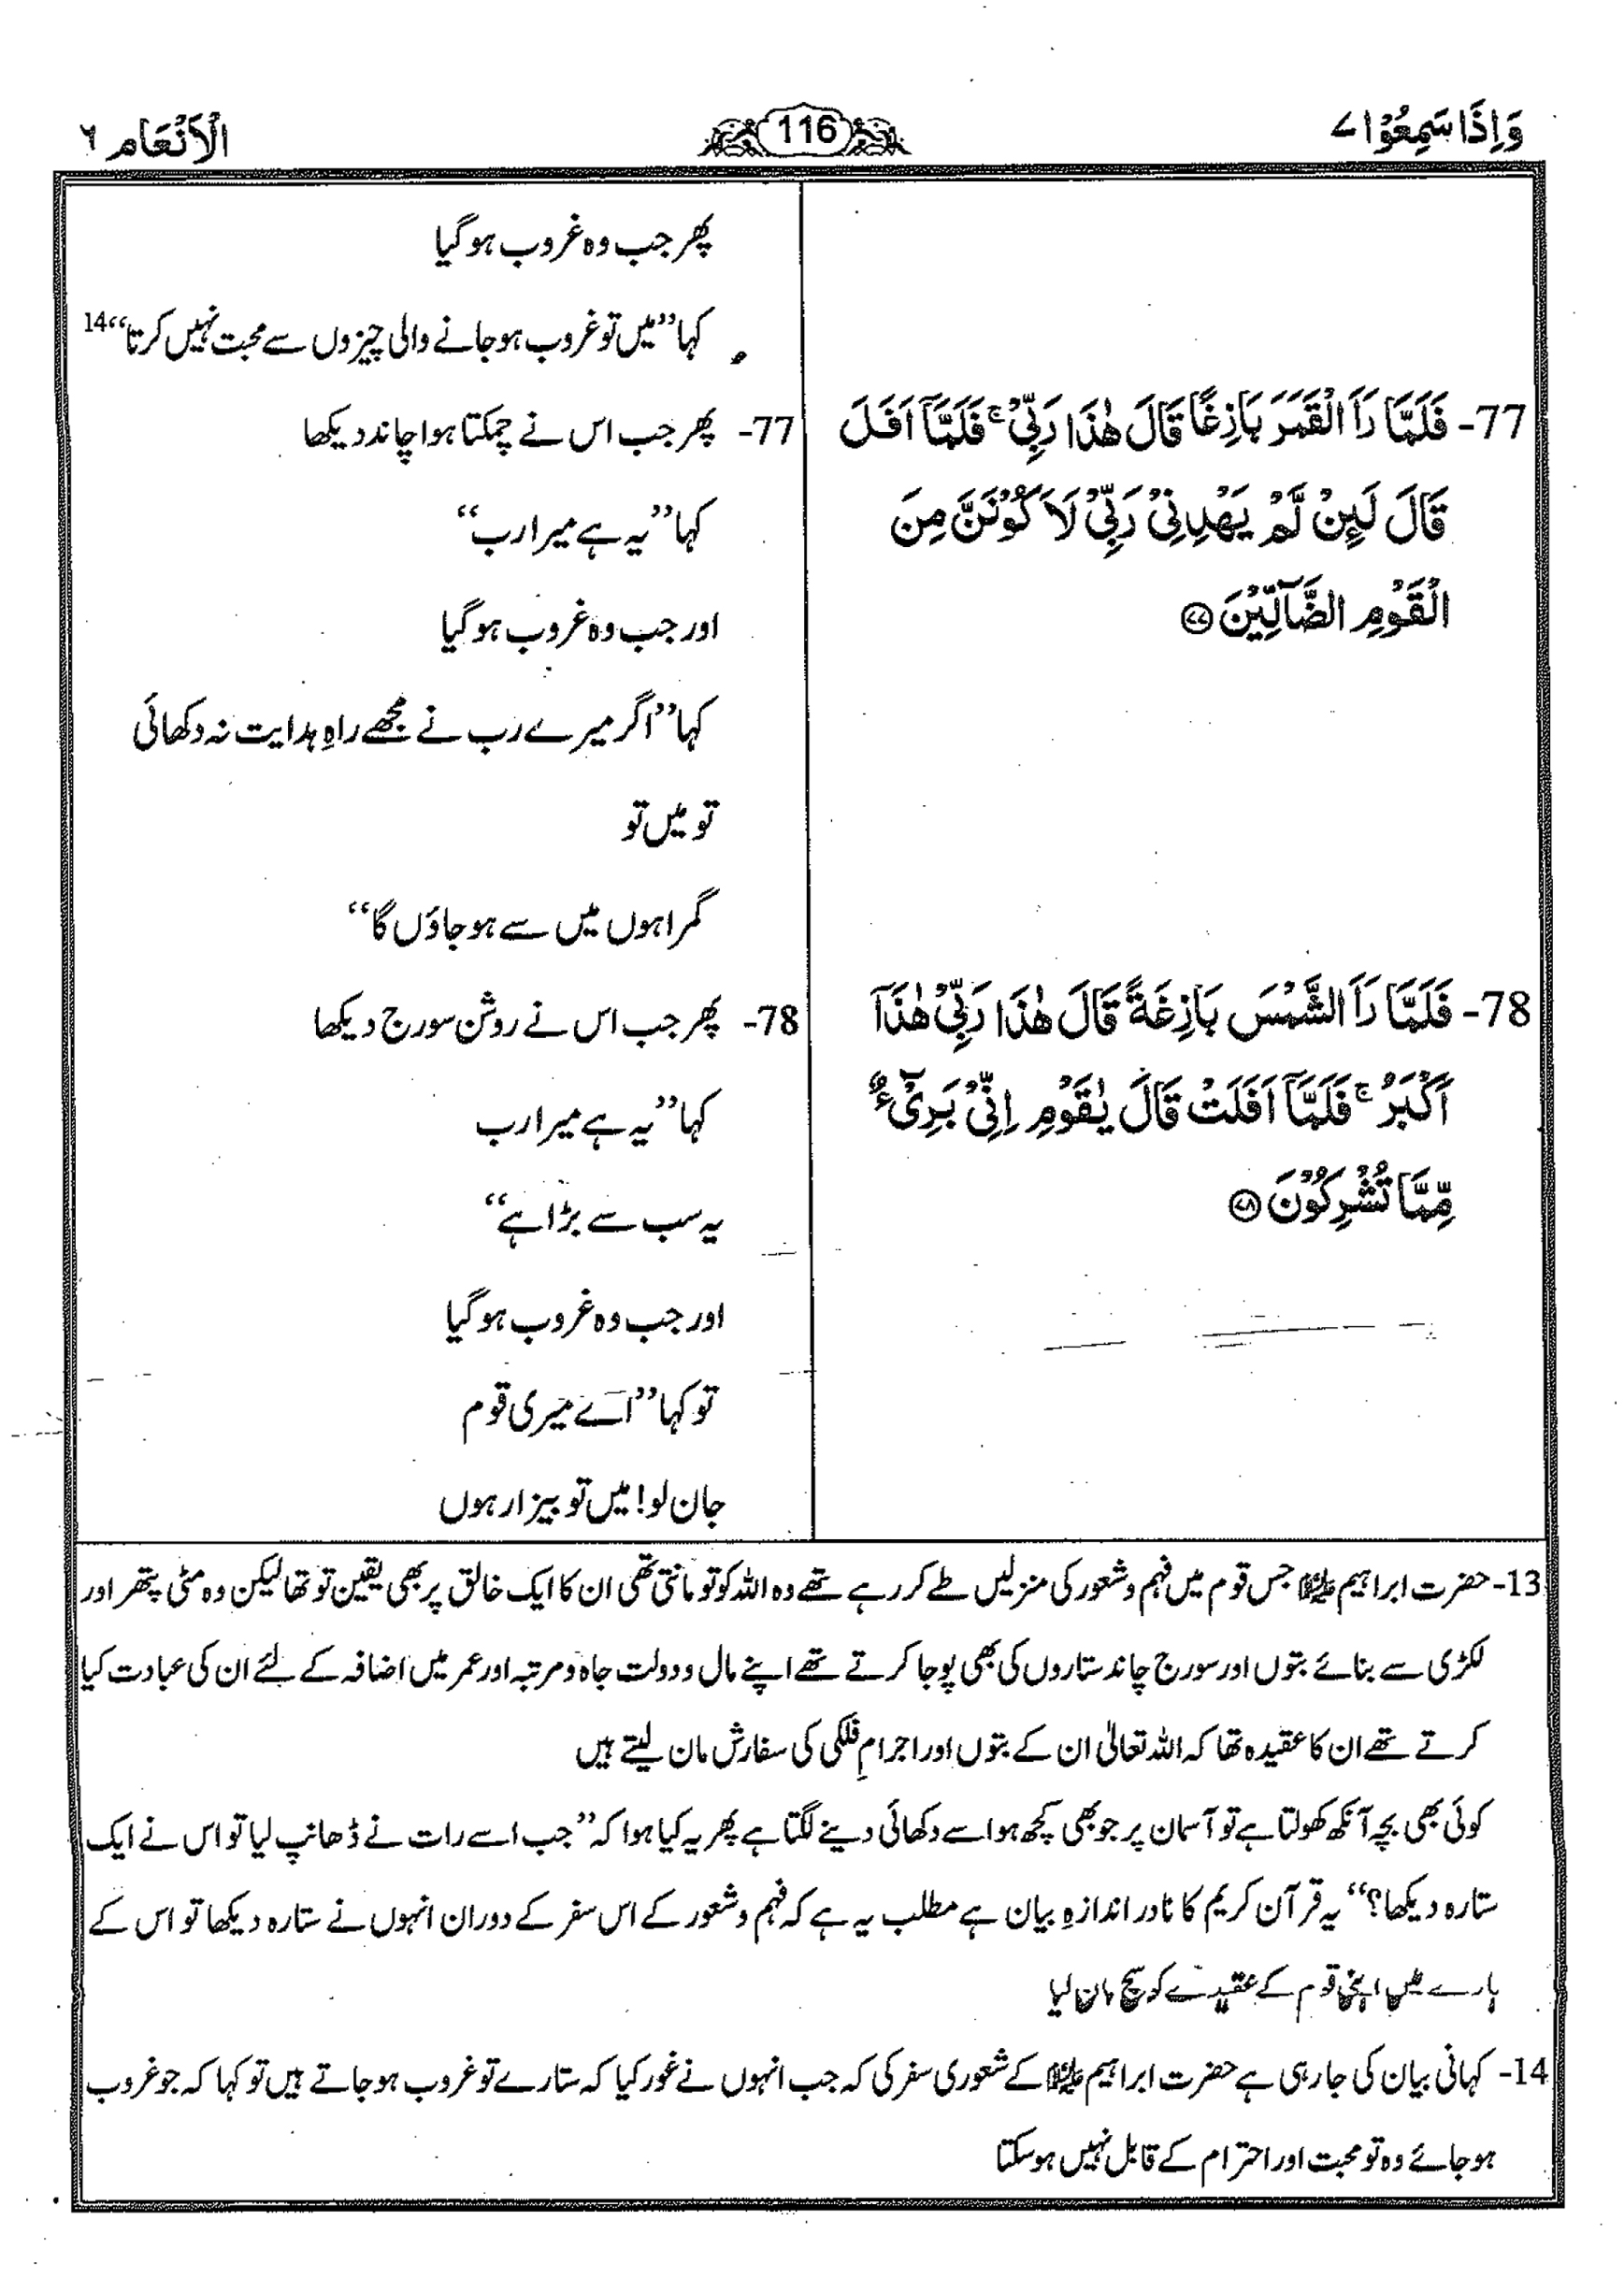 وَاِذَا سَمِعُوْا ۷
116
الْاَنْعَام ٦
77- فَلَمَّا رَاَ الْقَمَرَ بَازِغًا قَالَ هٰذَا رَبِّيْ ۚ فَلَمَّاۤ اَفَلَ
قَالَ لَىِٕنْ لَّمْ يَهْدِنِيْ رَبِّيْ لَاَكُوْنَنَّ مِنَ
الْقَوْمِ الضَّآلِّيْنَ ۷۷
78- فَلَمَّا رَاَ الشَّمْسَ بَازِغَةً قَالَ هٰذَا رَبِّيْ هٰذَاۤ
اَكْبَرُ ۚ فَلَمَّاۤ اَفَلَتْ قَالَ يٰقَوْمِ اِنِّيْ بَرِيْٓءٌ
مِّمَّا تُشْرِكُوْنَ ۷۸
پھر جب وہ غروب ہو گیا
کہا ”میں تو غروب ہو جانے والی چیزوں سے محبت نہیں کرتا“ 14
77- پھر جب اس نے چمکتا ہوا چاند دیکھا
کہا ”یہ ہے میرا رب“
اور جب وہ غروب ہو گیا
کہا ”اگر میرے رب نے مجھے راہِ ہدایت نہ دکھائی
تو میں تو
گمراہوں میں سے ہو جاؤں گا“
78- پھر جب اس نے روشن سورج دیکھا
کہا ”یہ ہے میرا رب
یہ سب سے بڑا ہے“
اور جب وہ غروب ہو گیا
تو کہا ”اے میری قوم
جان لو! میں تو بیزار ہوں
13- حضرت ابراہیم علیہ السلام جس قوم میں فہم و شعور کی منزلیں طے کر رہے تھے وہ اللہ کو تو مانتی تھی ان کا ایک خالق پر بھی یقین تو تھا لیکن وہ مٹی پتھر اور
لکڑی سے بنائے بتوں اور سورج چاند ستاروں کی بھی پوجا کرتے تھے اپنے مال و دولت جاہ و مرتبہ اور عمر میں اضافہ کے لئے ان کی عبادت کیا
کرتے تھے ان کا عقیدہ تھا کہ اللہ تعالیٰ ان کے بتوں اور اجرامِ فلکی کی سفارش مان لیتے ہیں
کوئی بھی بچہ آنکھ کھولتا ہے تو آسمان پر جو بھی کچھ ہو اسے دکھائی دینے لگتا ہے پھر یہ کیا ہوا کہ ”جب اسے رات نے ڈھانپ لیا تو اس نے ایک
ستارہ دیکھا؟“ یہ قرآن کریم کا نادر اندازہِ بیان ہے مطلب یہ ہے کہ فہم و شعور کے اس سفر کے دوران انہوں نے ستارہ دیکھا تو اس کے
بارے میں اپنی قوم کے عقیدے کو سچ مان لیا
14- کہانی بیان کی جا رہی ہے حضرت ابراہیم علیہ السلام کے شعوری سفر کی کہ جب انہوں نے غور کیا کہ ستارے تو غروب ہو جاتے ہیں تو کہا کہ جو غروب
ہو جائے وہ تو محبت اور احترام کے قابل نہیں ہو سکتا